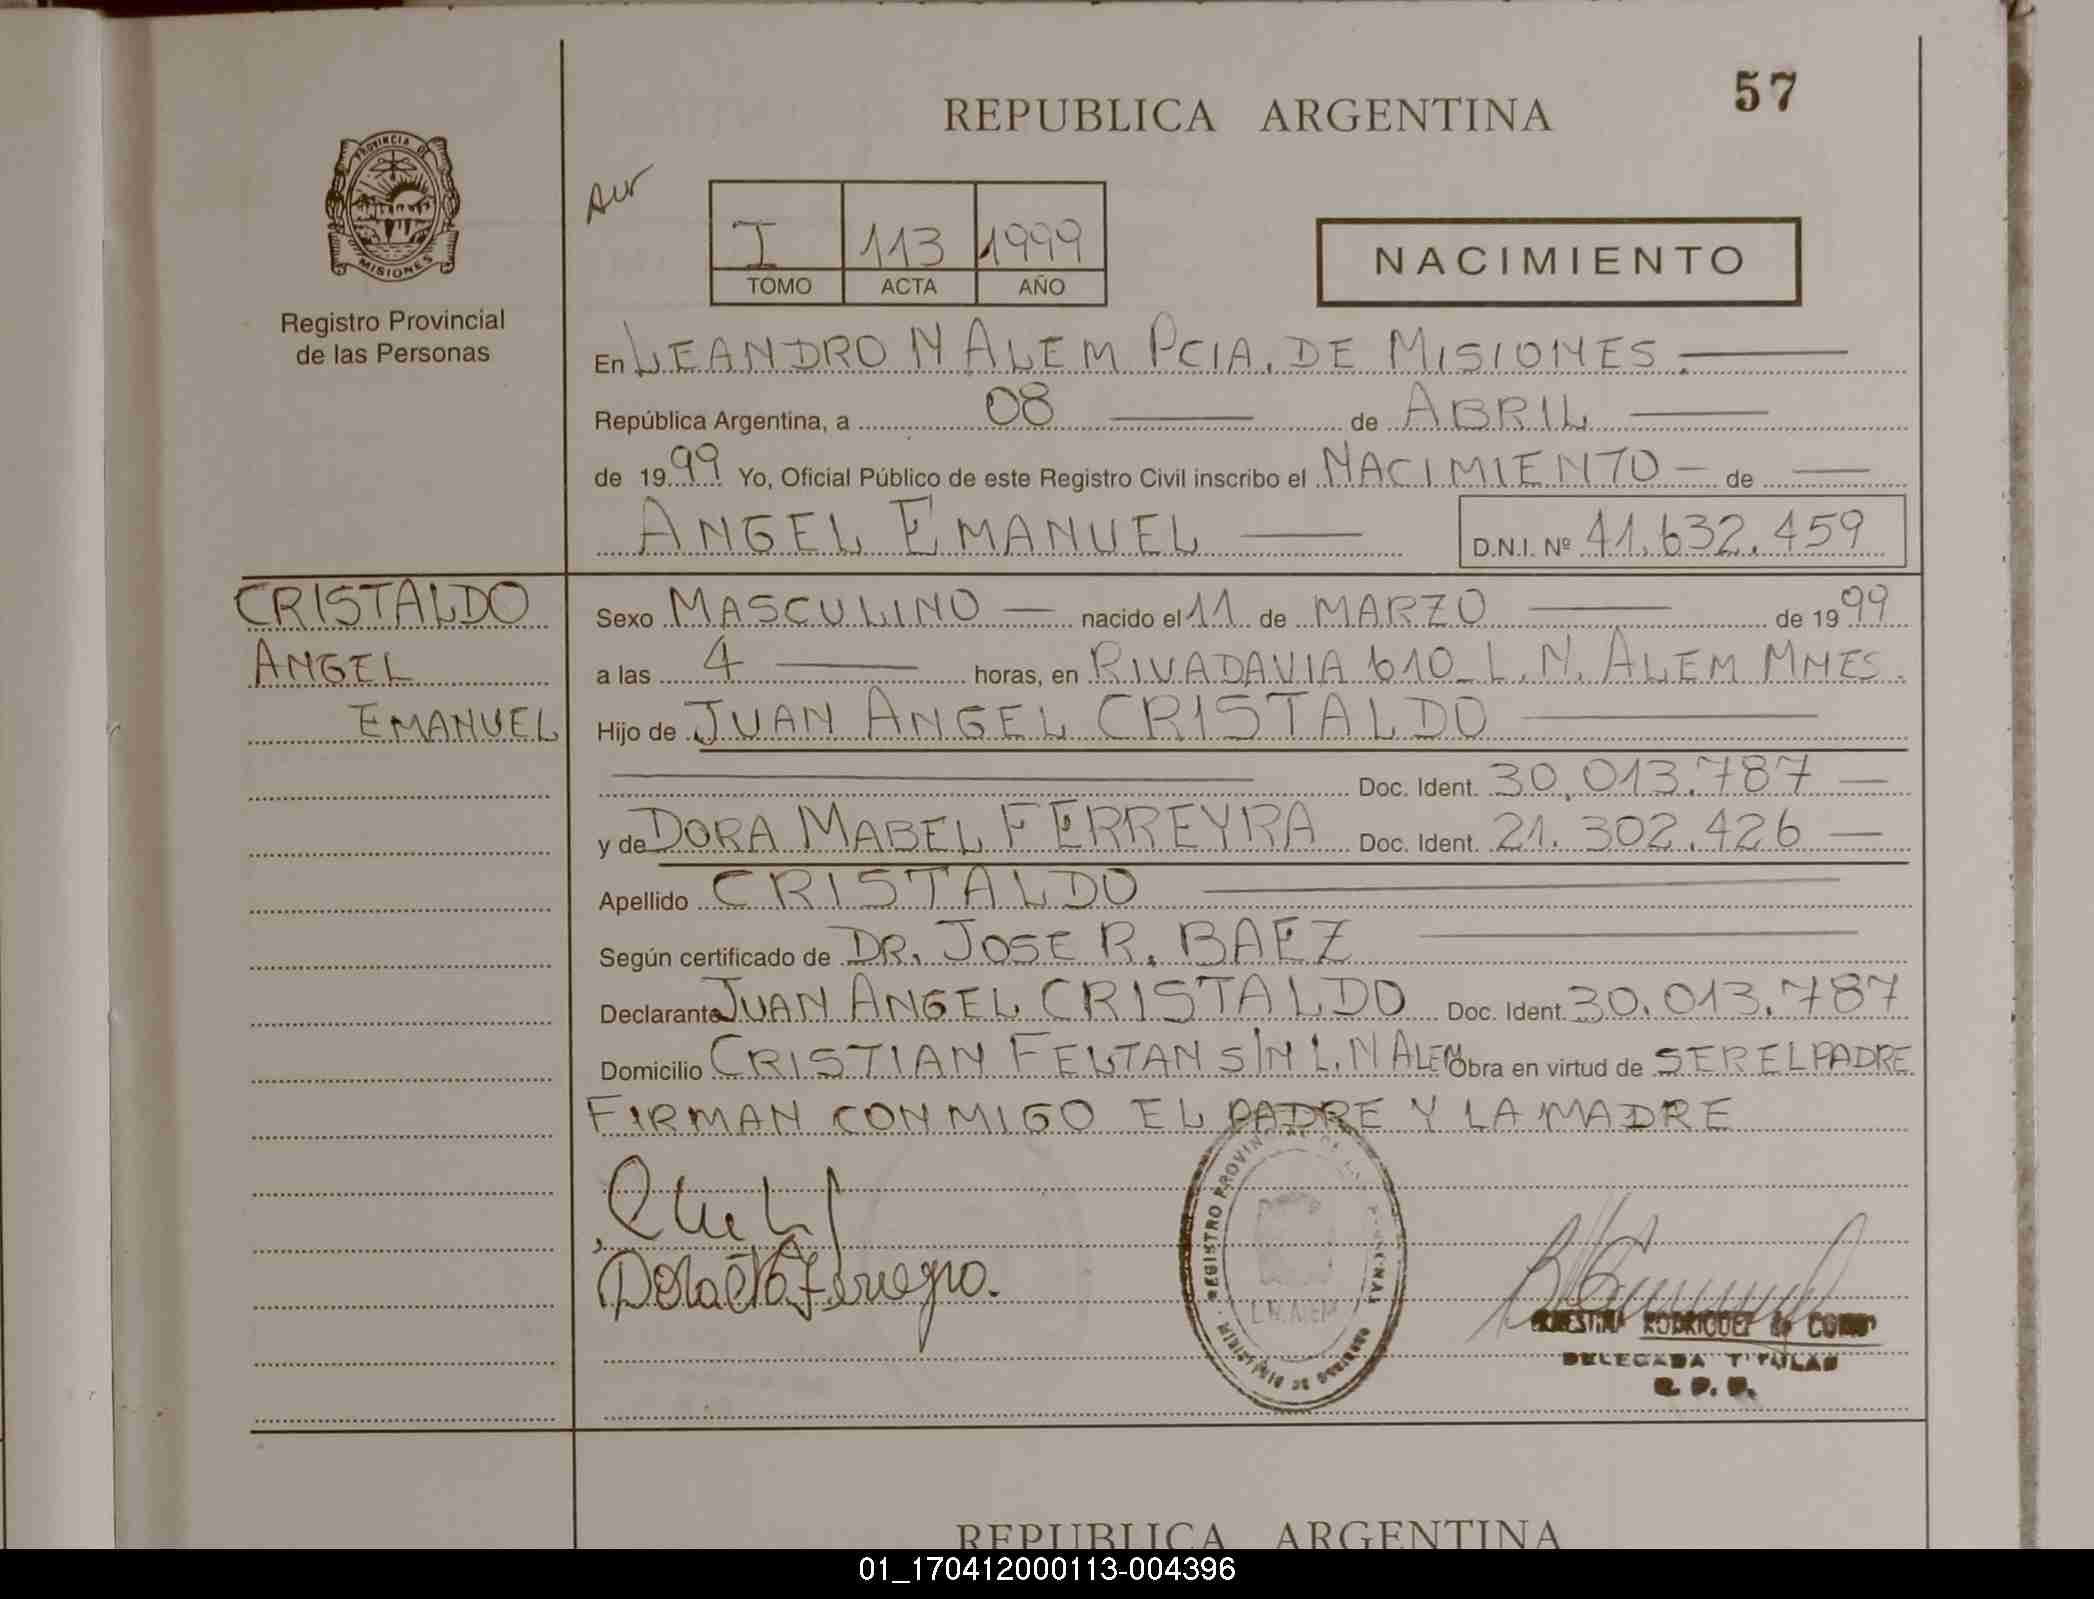 57
REPUBLICA ARGENTINA
PROVINCIA DE
MISIONES
Registro Provincial
de las Personas
I 113 1999
TOMO ACTA AÑO
NACIMIENTO
En LEANDRO N ALEM PCIA. DE MISIONES.
República Argentina, a 08 de ABRIL
de 1999 Yo, Oficial Público de este Registro Civil inscribo el NACIMIENTO de
ANGEL EMANUEL D.N.I. Nº 41.632.459
CRISTALDO
ANGEL
EMANUEL
Sexo MASCULINO nacido el 11 de MARZO de 1999
a las 4 horas, en RIVADAVIA 610_L.N. ALEM MNES.
Hijo de JUAN ANGEL CRISTALDO
Doc. Ident. 30.013.787
y de DORA MABEL FERREYRA Doc. Ident. 21.302.426
Apellido CRISTALDO
Según certificado de DR. JOSE R. BAEZ
Declarante JUAN ANGEL CRISTALDO Doc. Ident. 30.013.787
Domicilio CRISTIAN FELTAN S/N L.N ALEM Obra en virtud de SER EL PADRE
FIRMAN CONMIGO EL PADRE Y LA MADRE
REGISTRO PROVINCIAL DE LAS PERSONAS
L.N. ALEM
RODRIGUEZ de
DELEGADA TITULAR
R. P. P.
REPUBLICA ARGENTINA
01_170412000113-004396